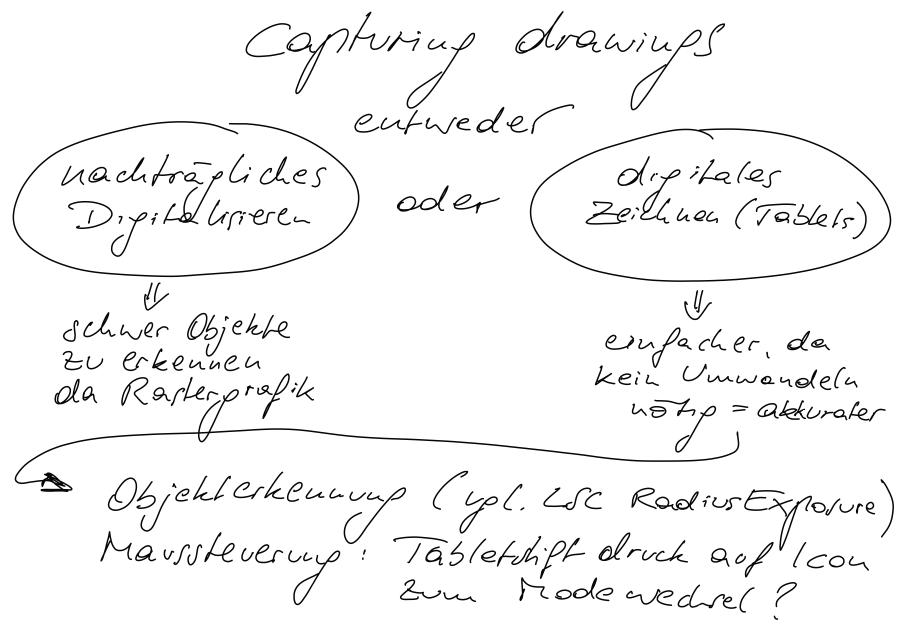 Capturing drawings
entweder
nachträgliches
Digitalisieren
oder
digitales
Zeichnen (Tablets)
⇓
schwer Objekte
zu erkennen
da Rastergrafik
⇓
einfacher, da
kein Umwandeln
nötig = akkurater
Objekterkennung (vgl. LSC RadiusExposure)
Maussteuerung: Tabletstift druck auf Icon
zum Mode wechsel?